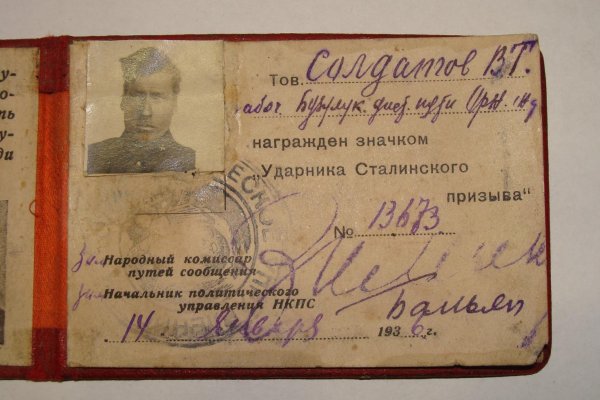 у-
о-
ть
у-
ди
Тов. Солдатов В Т.
Бузулук дист. пути Орн. жд
награжден значком
„Ударника Сталинского
призыва“
№ 13673
Народный комиссар
путей сообщения
Начальник политического
управления НКПС
14 Января 1936 г.